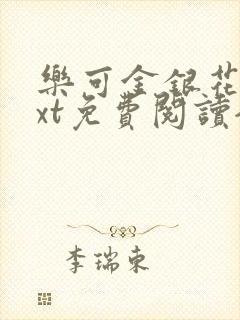 樂可金銀花
xt免費閱讀
李瑞東